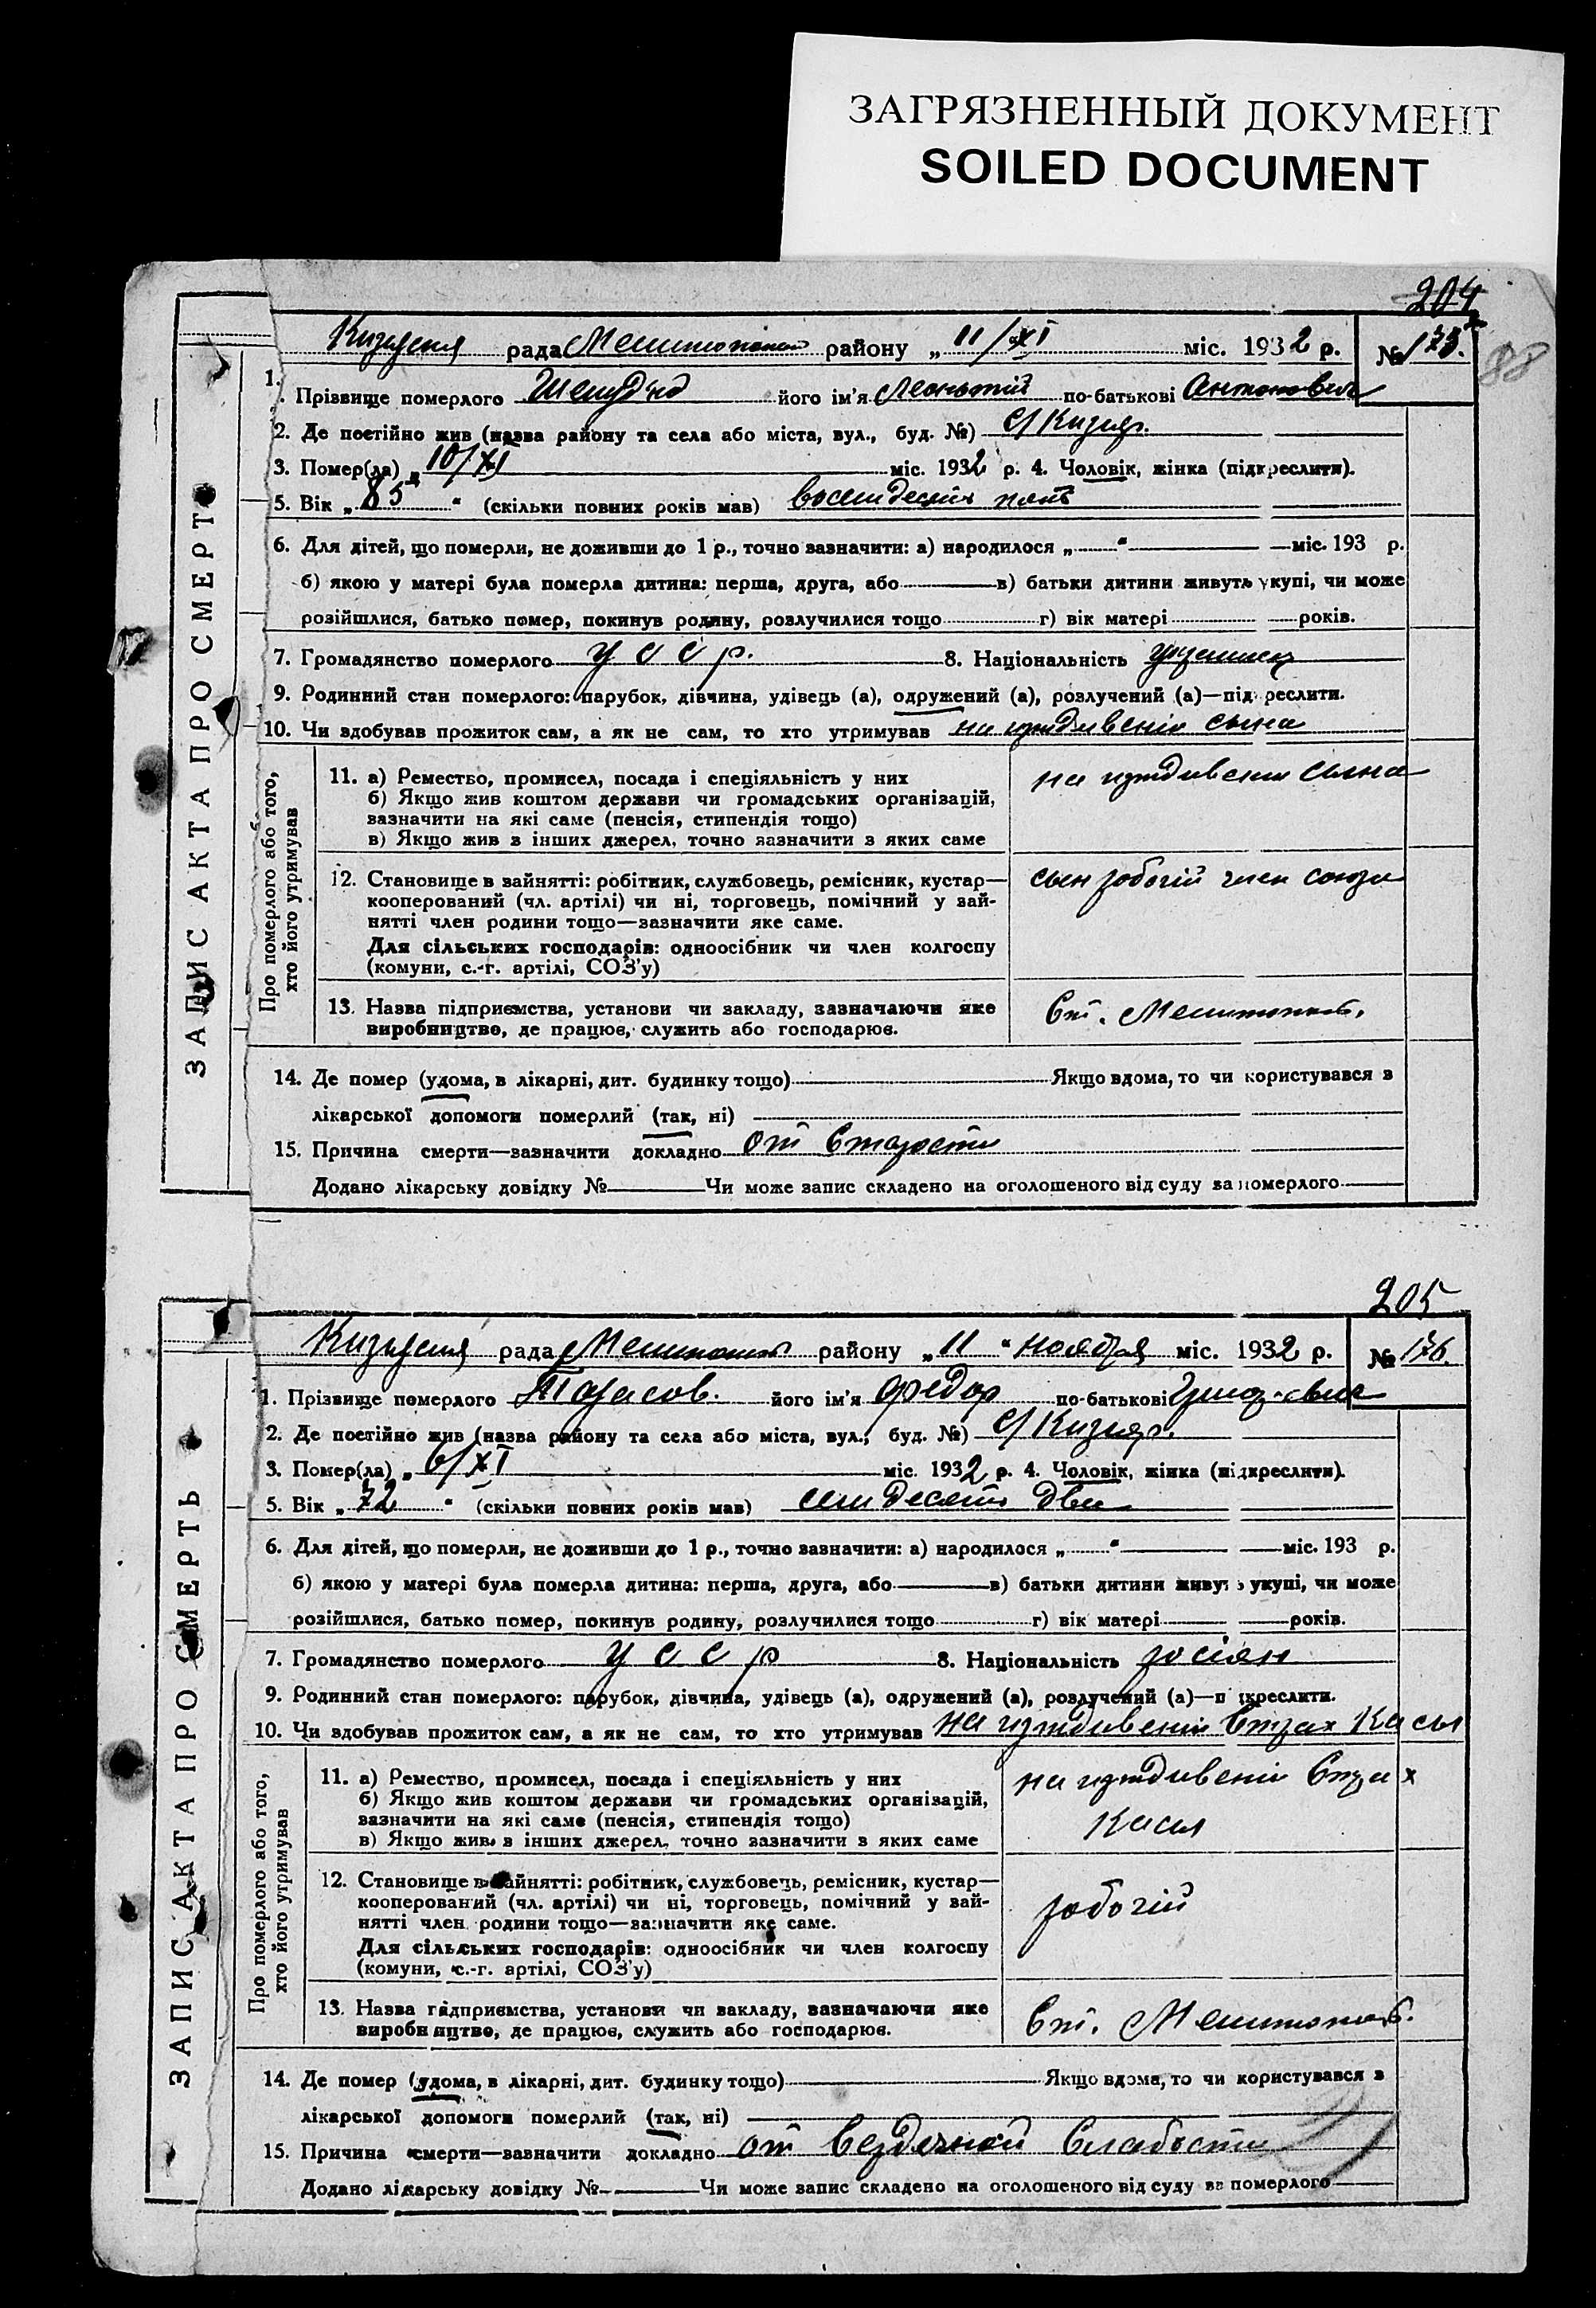 ЗАГРЯЗНЕННЫЙ ДОКУМЕНТ
SOILED DOCUMENT
204
88
ЗАПИС АКТА ПРО СМЕРТЬ
рада Мелитопольск району „11/XI міс. 1932 р. № 175.
1. Прізвище померлого його ім'я Леонтій по-батькові Антонович
2. Де постійно жив (назва району та села або міста, вул., буд. №) с/Кизияр.
3. Помер(ла) „10/XI міс. 1932 р. 4. Чоловік, жінка (підкреслити).
5. Вік „85" (скільки повних років мав) восемдесят пять
6. Для дітей, що померли, не доживши до 1 р., точно зазначити: а) народилося „ " міс. 193 р.
б) якою у матері була померла дитина: перша, друга, або в) батьки дитини живуть укупі, чи може
розійшлися, батько помер, покинув родину, розлучилися тощо г) вік матері років.
7. Громадянство померлого УССР. 8. Національність украинец
9. Родинний стан померлого: парубок, дівчина, удівець (а), одружений (а), розлучений (а)—підкреслити.
10. Чи здобував прожиток сам, а як не сам, то хто утримував на иждивеніи сына
Про померлого або того,
хто його утримував
11. а) Ремество, промисел, посада і спеціяльність у них
б) Якщо жив коштом держави чи громадських організацій,
зазначити на які саме (пенсія, стипендія тощо)
в) Якщо жив з інших джерел, точно зазначити з яких саме
на иждивении сына
12. Становище в зайнятті: робітник, службовець, ремісник, кустар—
кооперований (чл. артілі) чи ні, торговець, помічний у зай-
нятті член родини тощо—зазначити яке саме.
Для сільських господарів: одноосібник чи член колгоспу
(комуни, с.-г. артілі, СОЗ'у)
сын робочій член союза
13. Назва підприємства, установи чи закладу, зазначаючи яке
виробництво, де працює, служить або господарює.
Ст. Мелитополь.
14. Де помер (удома, в лікарні, дит. будинку тощо) Якщо вдома, то чи користувався з
лікарської допомоги померлий (так, ні)
15. Причина смерти—зазначити докладно от Старости
Додано лікарську довідку № Чи може запис складено на оголошеного від суду за померлого
205
ЗАПИС АКТА ПРО СМЕРТЬ
рада Мелитопольск району „11" ноября міс. 1932 р. № 176.
1. Прізвище померлого Тарасов. його ім'я Федор по-батькові Григорьевич
2. Де постійно жив (назва району та села або міста, вул., буд. №) с/Кизияр.
3. Помер(ла) „6/XI міс. 1932 р. 4. Чоловік, жінка (підкреслити).
5. Вік „72" (скільки повних років мав) семдесят два
6. Для дітей, що померли, не доживши до 1 р., точно зазначити: а) народилося „ " міс. 193 р.
б) якою у матері була померла дитина: перша, друга, або в) батьки дитини живуть укупі, чи може
розійшлися, батько помер, покинув родину, розлучилися тощо г) вік матері років.
7. Громадянство померлого УССР 8. Національність росіян
9. Родинний стан померлого: парубок, дівчина, удівець (а), одружений (а), розлучений (а)—підкреслити.
10. Чи здобував прожиток сам, а як не сам, то хто утримував на иждивеніи Страх Касы
Про померлого або того,
хто його утримував
11. а) Ремество, промисел, посада і спеціяльність у них
б) Якщо жив коштом держави чи громадських організацій,
зазначити на які саме (пенсія, стипендія тощо)
в) Якщо жив з інших джерел, точно зазначити з яких саме
на иждивеніи Страх
Касы
12. Становище в зайнятті: робітник, службовець, ремісник, кустар—
кооперований (чл. артілі) чи ні, торговець, помічний у зай-
нятті член родини тощо—зазначити яке саме.
Для сільських господарів: одноосібник чи член колгоспу
(комуни, с.-г. артілі, СОЗ'у)
робочій
13. Назва підприємства, установи чи закладу, зазначаючи яке
виробництво, де працює, служить або господарює.
Ст. Мелитополь.
14. Де помер (удома, в лікарні, дит. будинку тощо) Якщо вдома, то чи користувався з
лікарської допомоги померлий (так, ні)
15. Причина смерти—зазначити докладно от Сердечной Слабости
Додано лікарську довідку № Чи може запис складено на оголошеного від суду за померлого